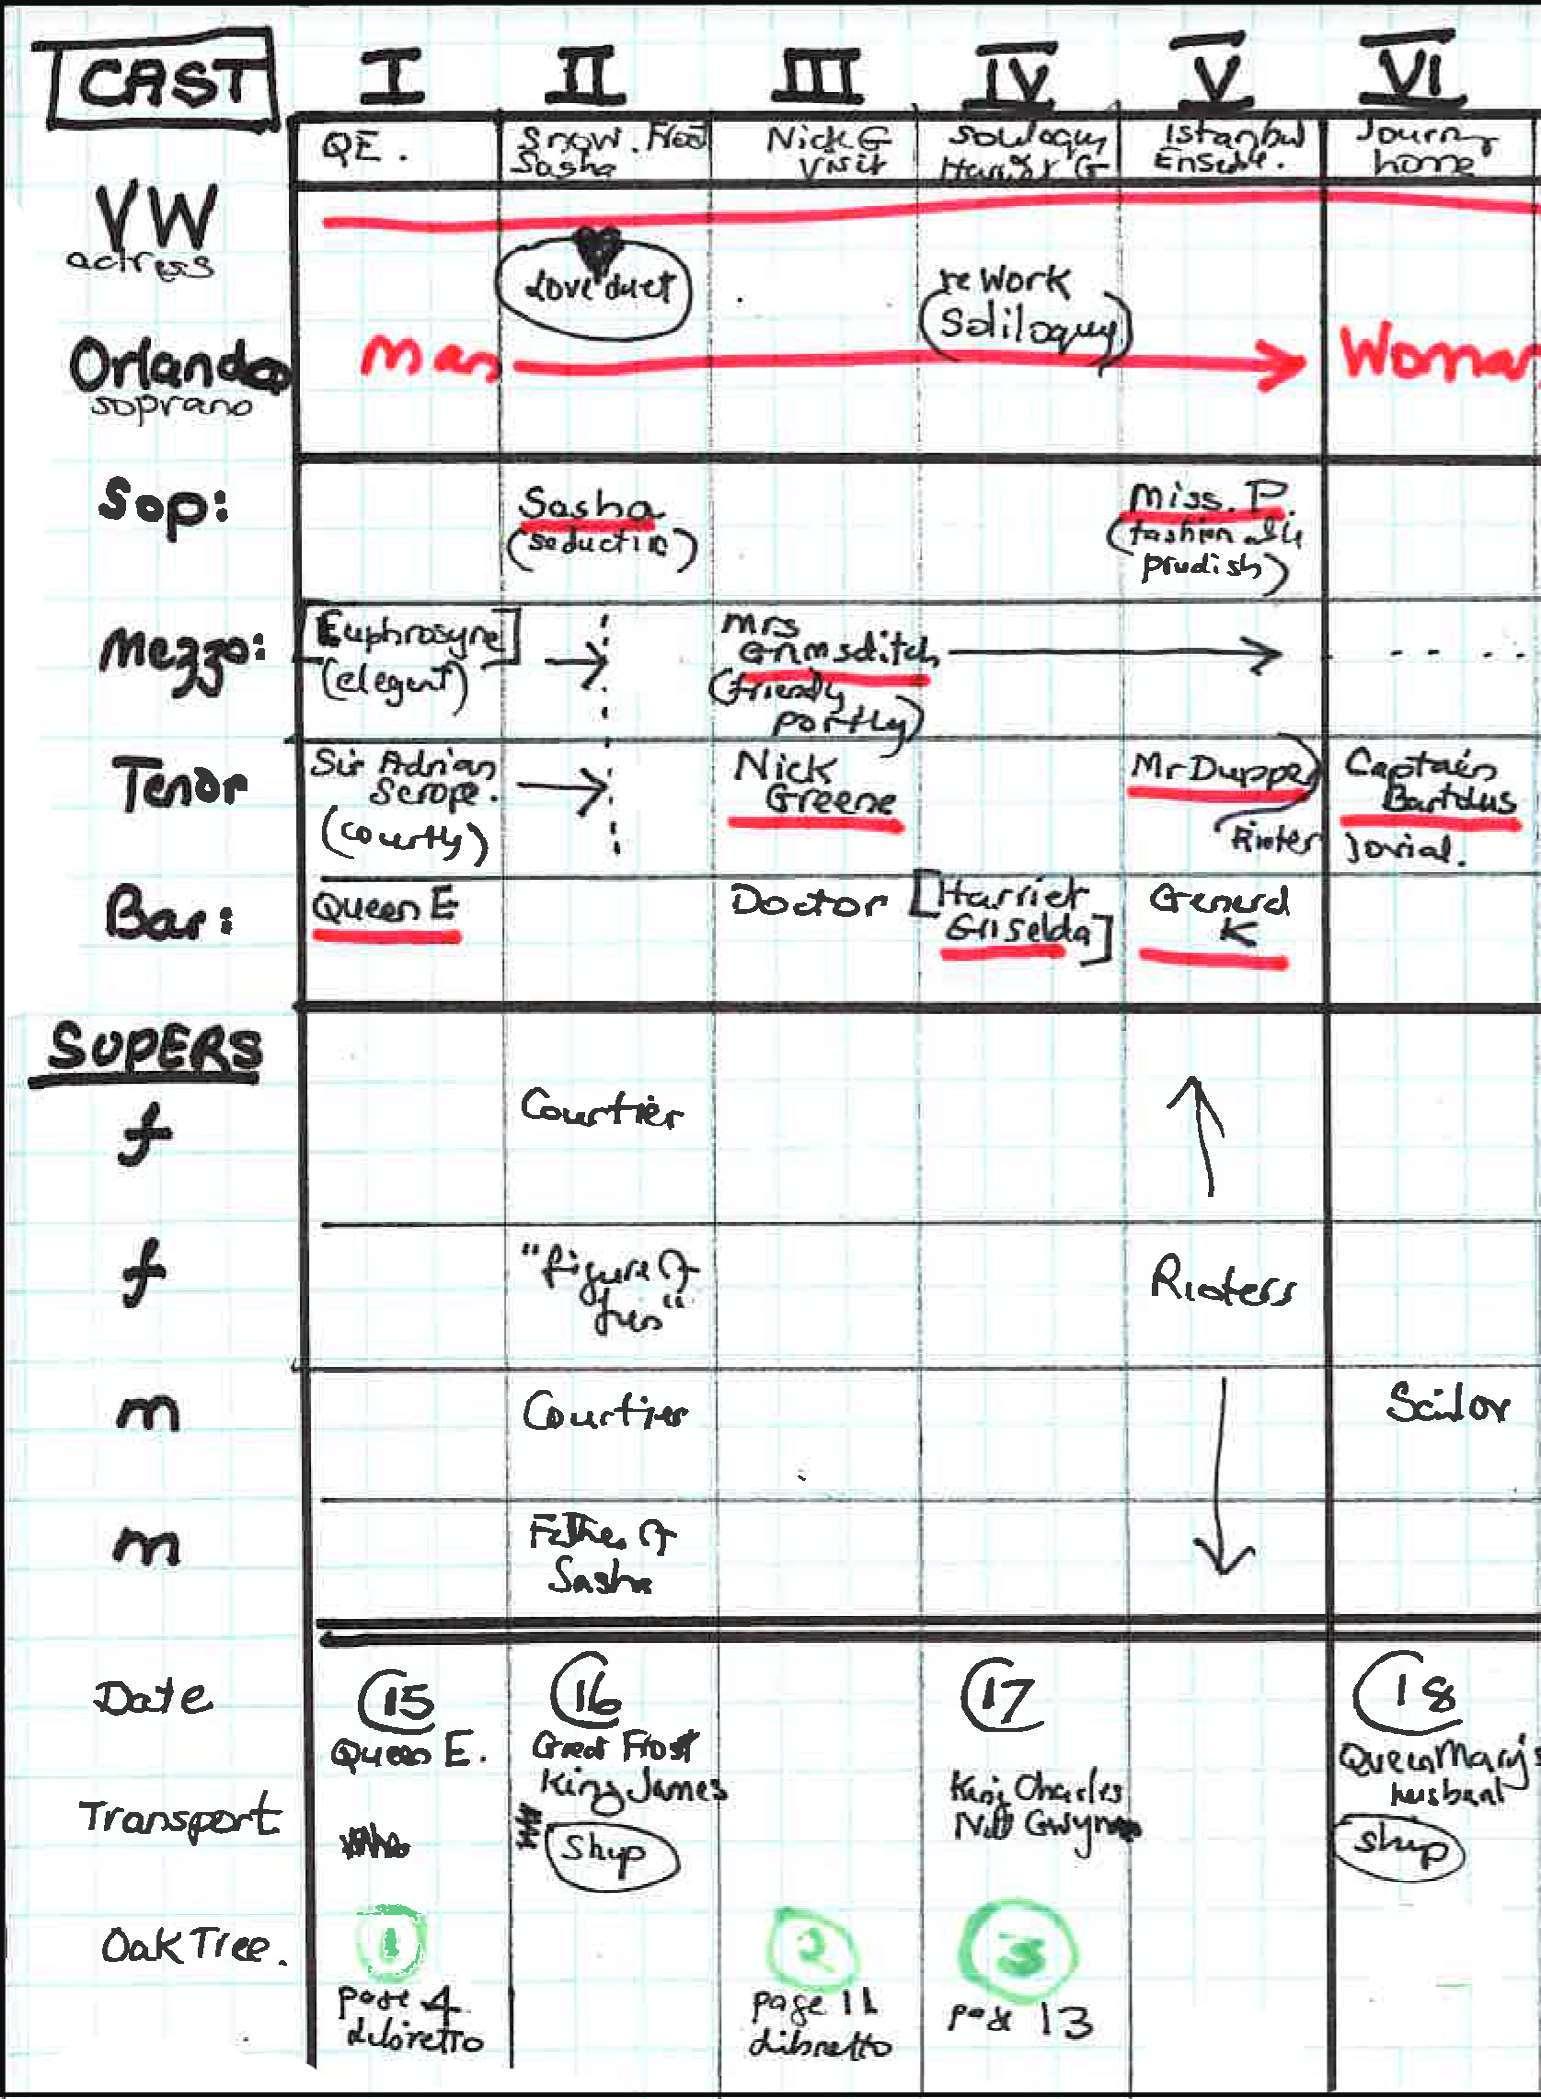 CAST I II III IV V VI
QE. Snow. Sasha Nick G Visit Soliloquy G Istanbul Journ home
VW
actress
Love duet
reWork
(Soliloquy)
Orlando Man Woman
soprano
Sop: Sasha Miss. P.
prudish)
Mezzo: [Euphrosyne] Mrs Grimsditch
(elegant) (friendly
portly)
Tenor Sir Adrian Scrope. Nick Greene Mr Duppe Captain Bartolus
(courtly) Rioter Jovial.
Bar: Queen E Doctor [Harriet Griselda] General K
SUPERS
f Courtier
f "figure of Rioters
m Courtier Sailor
m Father of
Sasha
Date 15 16 17 18
Queen E. Great Frost
King James King Charles Nell Gwynne Queen Mary's husband
Transport Ship Ship
Oak Tree. 1 2 3
page 4 page 11 page 13
Libretto Libretto